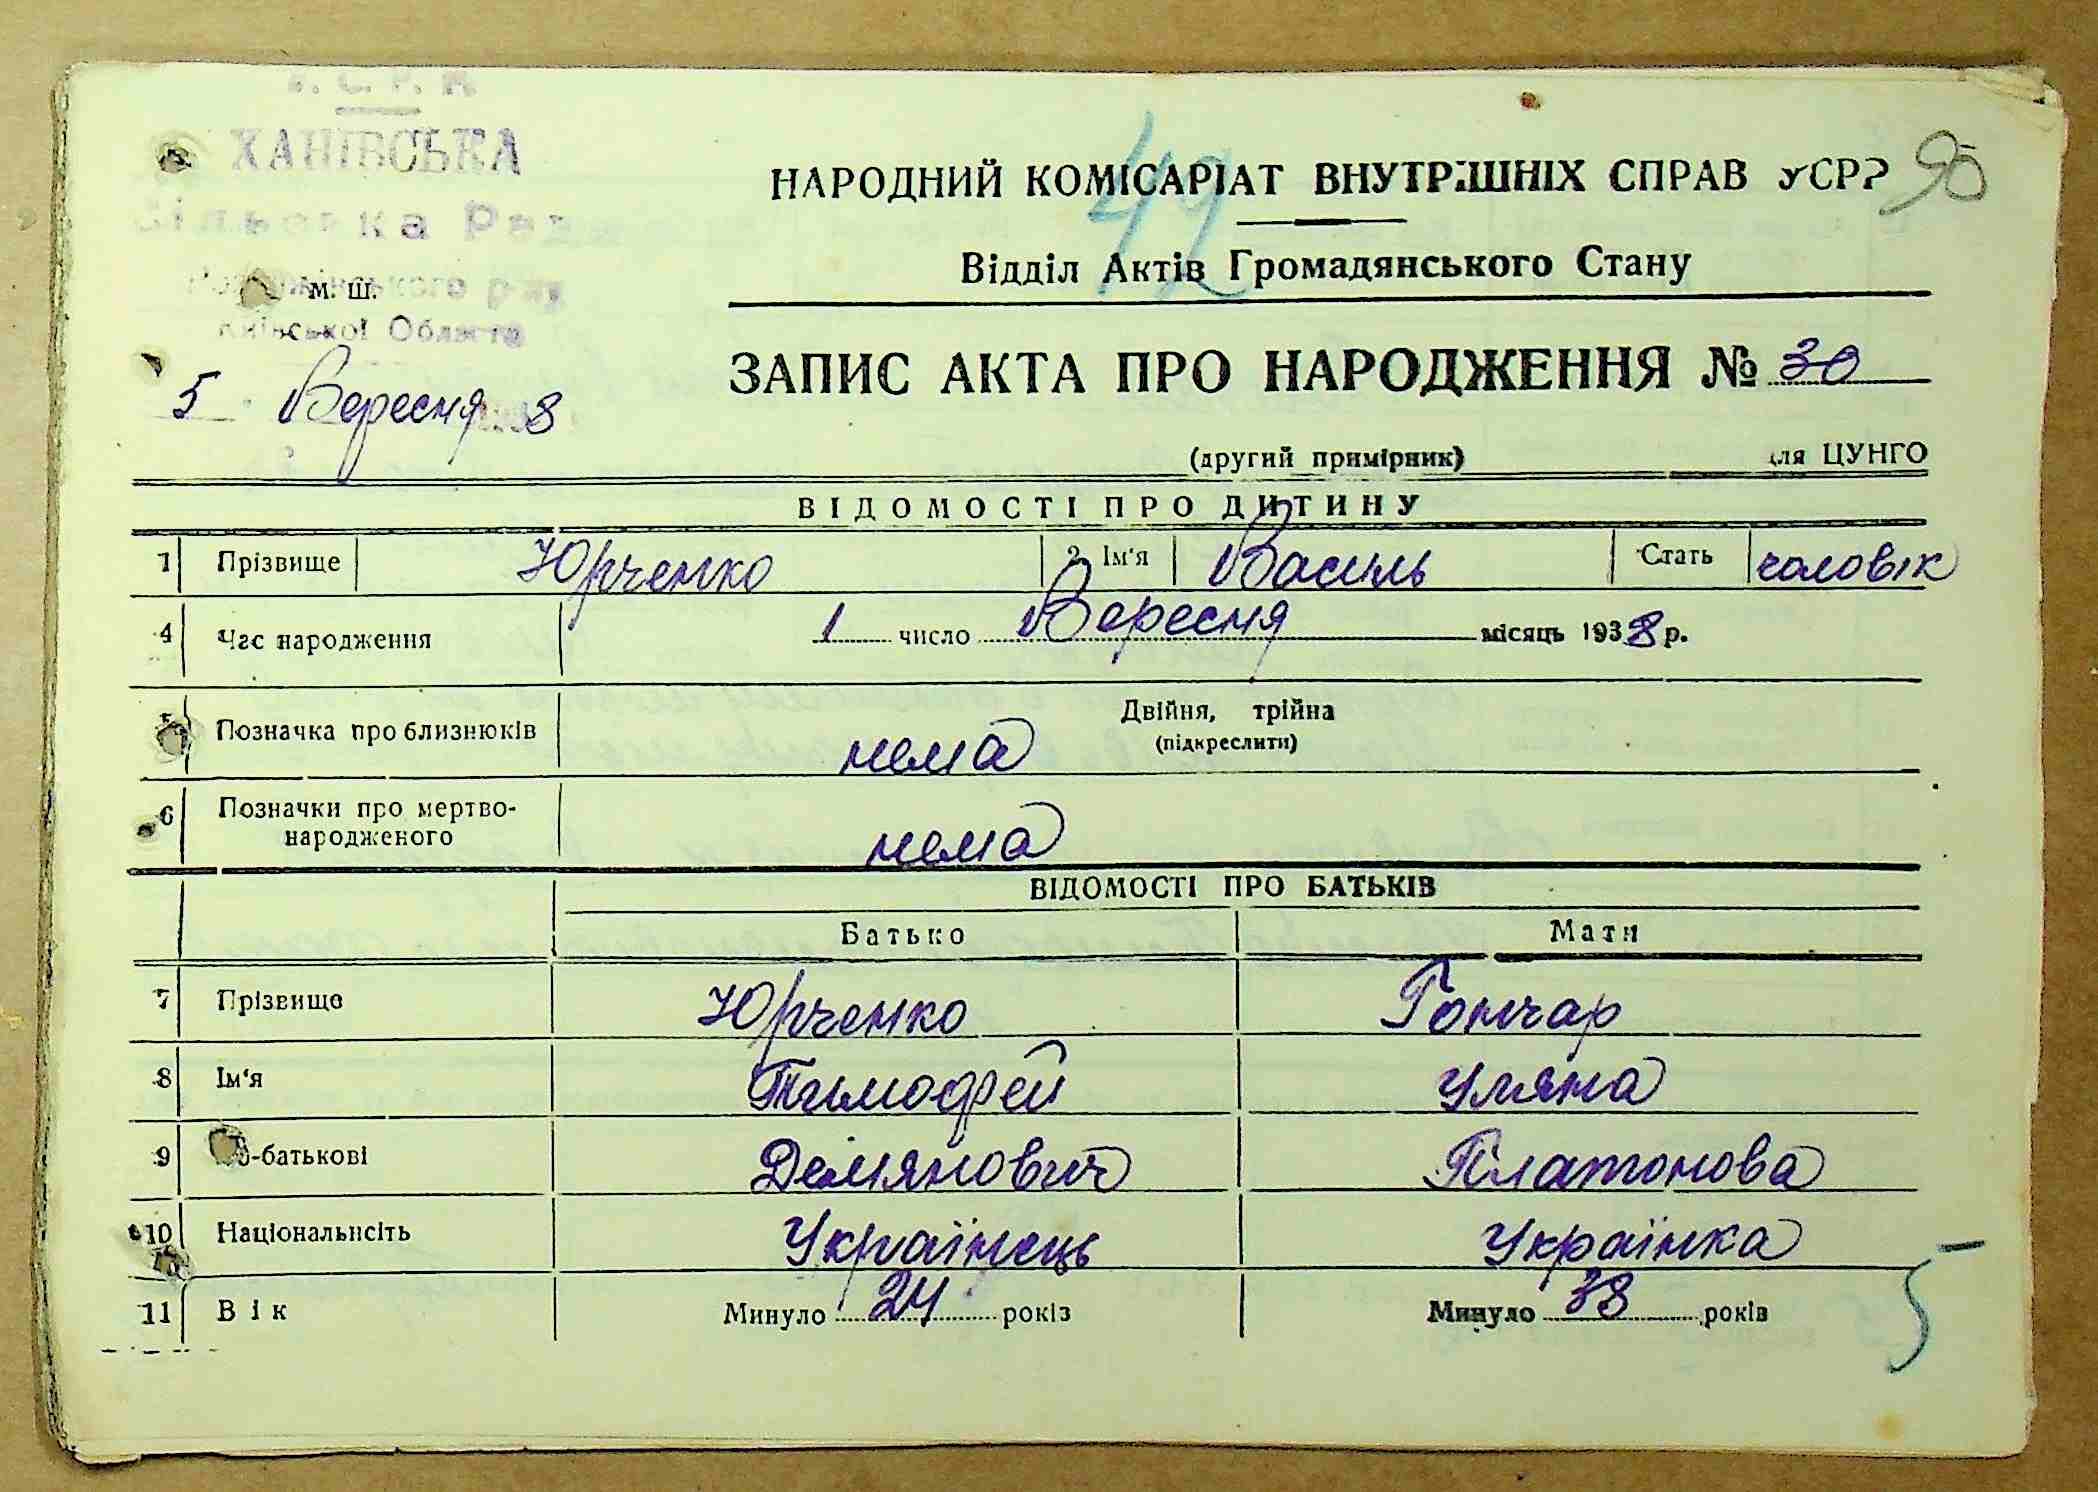 ХАНІВСЬКА
Сільська Рада
М. Ш.
Київської Області
5 Вересня 8
НАРОДНИЙ КОМІСАРІАТ ВНУТРІШНІХ СПРАВ УСРР
90
42
Відділ Актів Громадянського Стану
ЗАПИС АКТА ПРО НАРОДЖЕННЯ № 30
(другий примірник) для ЦУНГО
ВІДОМОСТІ ПРО ДИТИНУ
1 Прізвище Юрченко 2 Ім'я Василь Стать чоловік
4 Час народження 1 число Вересня місяць 1938 р.
5 Позначка про близнюків нема Двійня, трійна
(підкреслити)
6 Позначки про мертво-
народженого нема
ВІДОМОСТІ ПРО БАТЬКІВ
Батько Мати
7 Прізвище Юрченко Гончар
8 Ім'я Тимофей Уляна
9 По-батькові Демянович Платонова
10 Національність Українець Українка
11 Вік Минуло 24 років Минуло 38 років
5